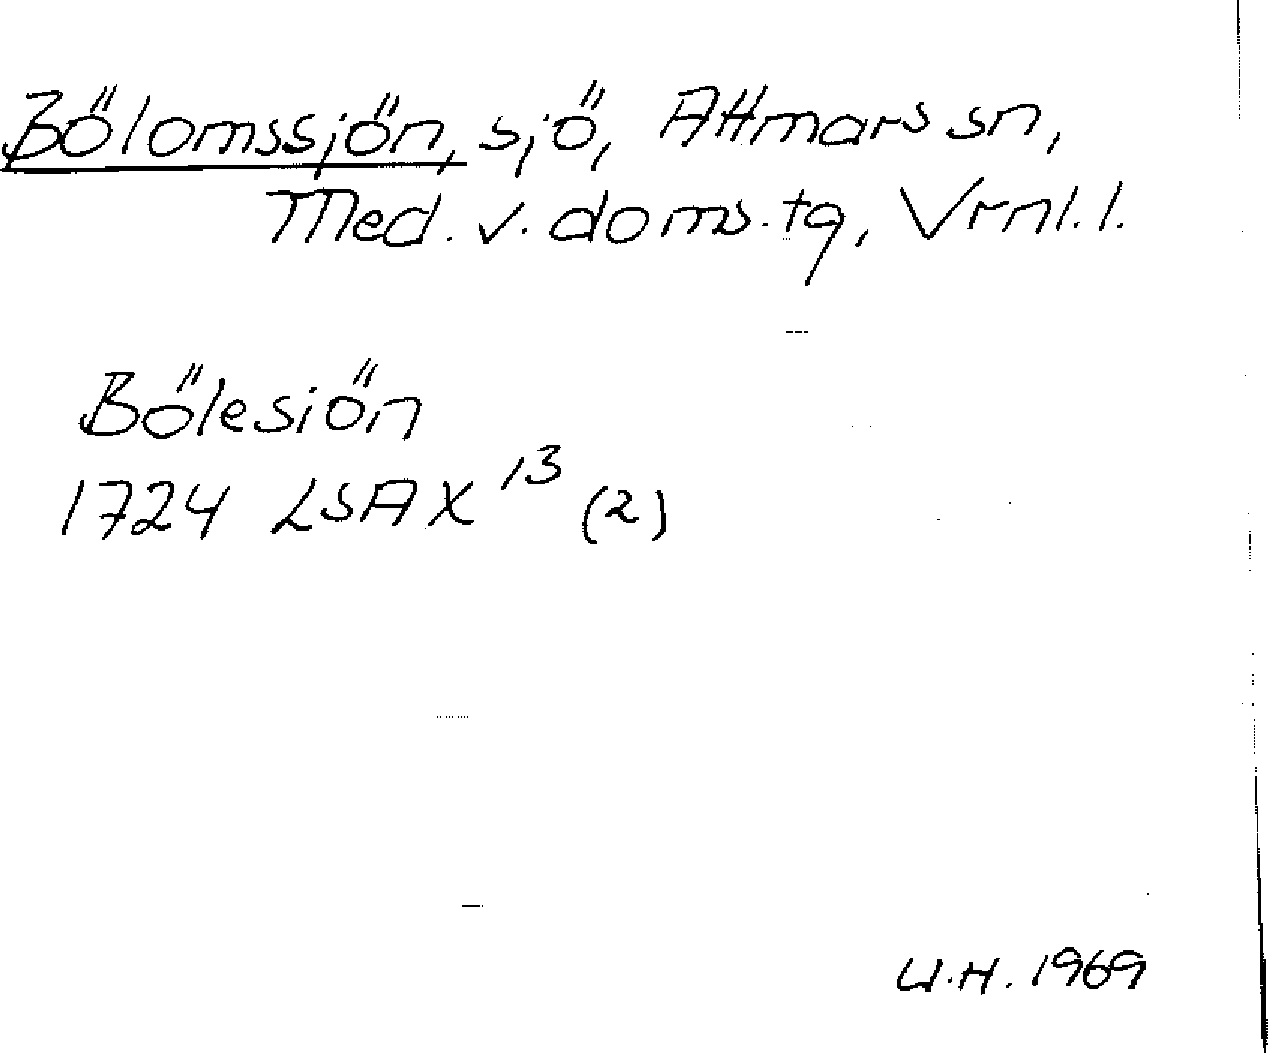 Bölomssjön, sjö, Attmars sn,
Med. v. doms. tg, Vrnl. l.
Bölesiön
1724 LSA X 13 (2)
U.H. 1969